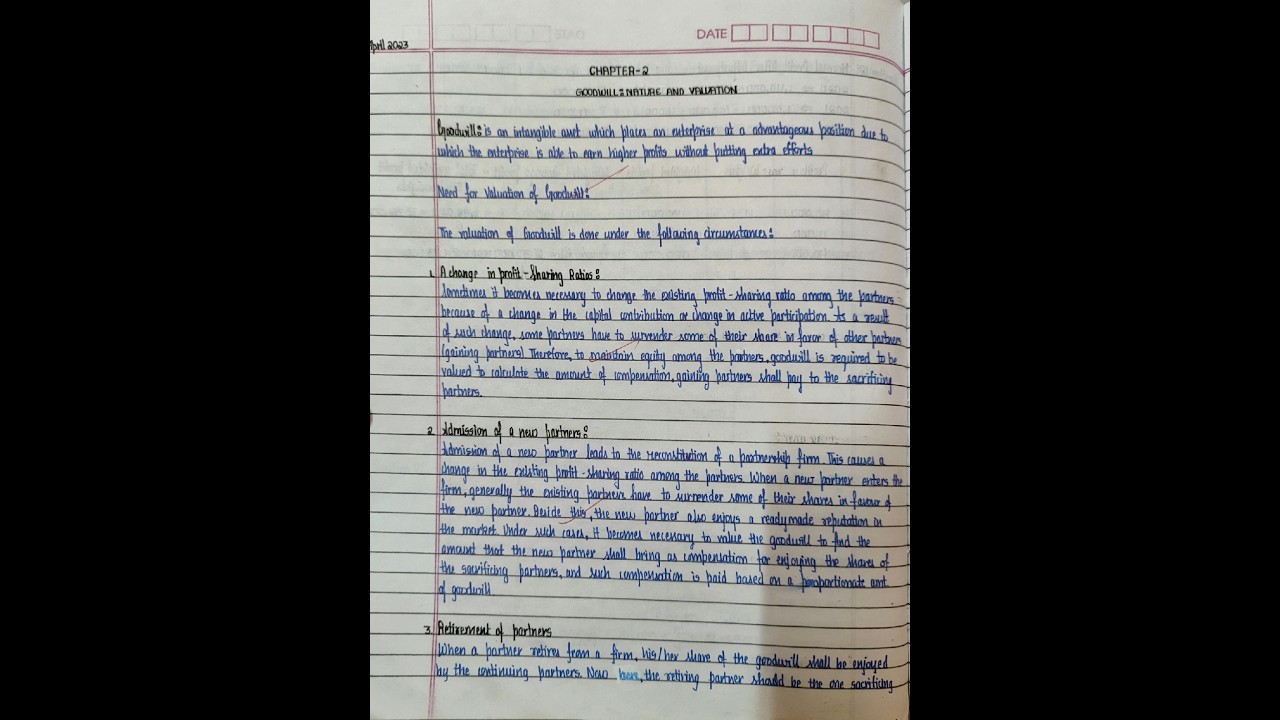 DATE
April 2023
CHAPTER-2
GOODWILL: NATURE AND VALUATION
Goodwill: is an intangible asset which places an enterprise at a advantageous position due to
which the enterprise is able to earn higher profits without putting extra efforts
Need for Valuation of Goodwill:
The valuation of Goodwill is done under the following circumstances:
1. A change in profit-Sharing Ratios:
Sometimes it becomes necessary to change the existing profit-sharing ratio among the partners
because of a change in the capital contribution or change in active participation. As a result
of such change, some partners have to surrender some of their share in favor of other partners
(gaining partners). Therefore, to maintain equity among the partners, goodwill is required to be
valued to calculate the amount of compensation, gaining partners shall pay to the sacrificing
partners.
2. Admission of a new partners:
Admission of a new partner leads to the reconstitution of a partnership firm. This causes a
change in the existing profit-sharing ratio among the partners. When a new partner enters the
firm, generally the existing partners have to surrender some of their shares in favour of
the new partner. Beside this, the new partner also enjoys a readymade reputation in
the market. Under such cases, it becomes necessary to value the goodwill to find the
amount that the new partner shall bring as compensation for enjoying the shares of
the sacrificing partners, and such compensation is paid based on a proportionate amt.
of goodwill.
3. Retirement of partners
When a partner retires from a firm, his/her share of the goodwill shall be enjoyed
by the continuing partners. Now here, the retiring partner should be the one sacrificing